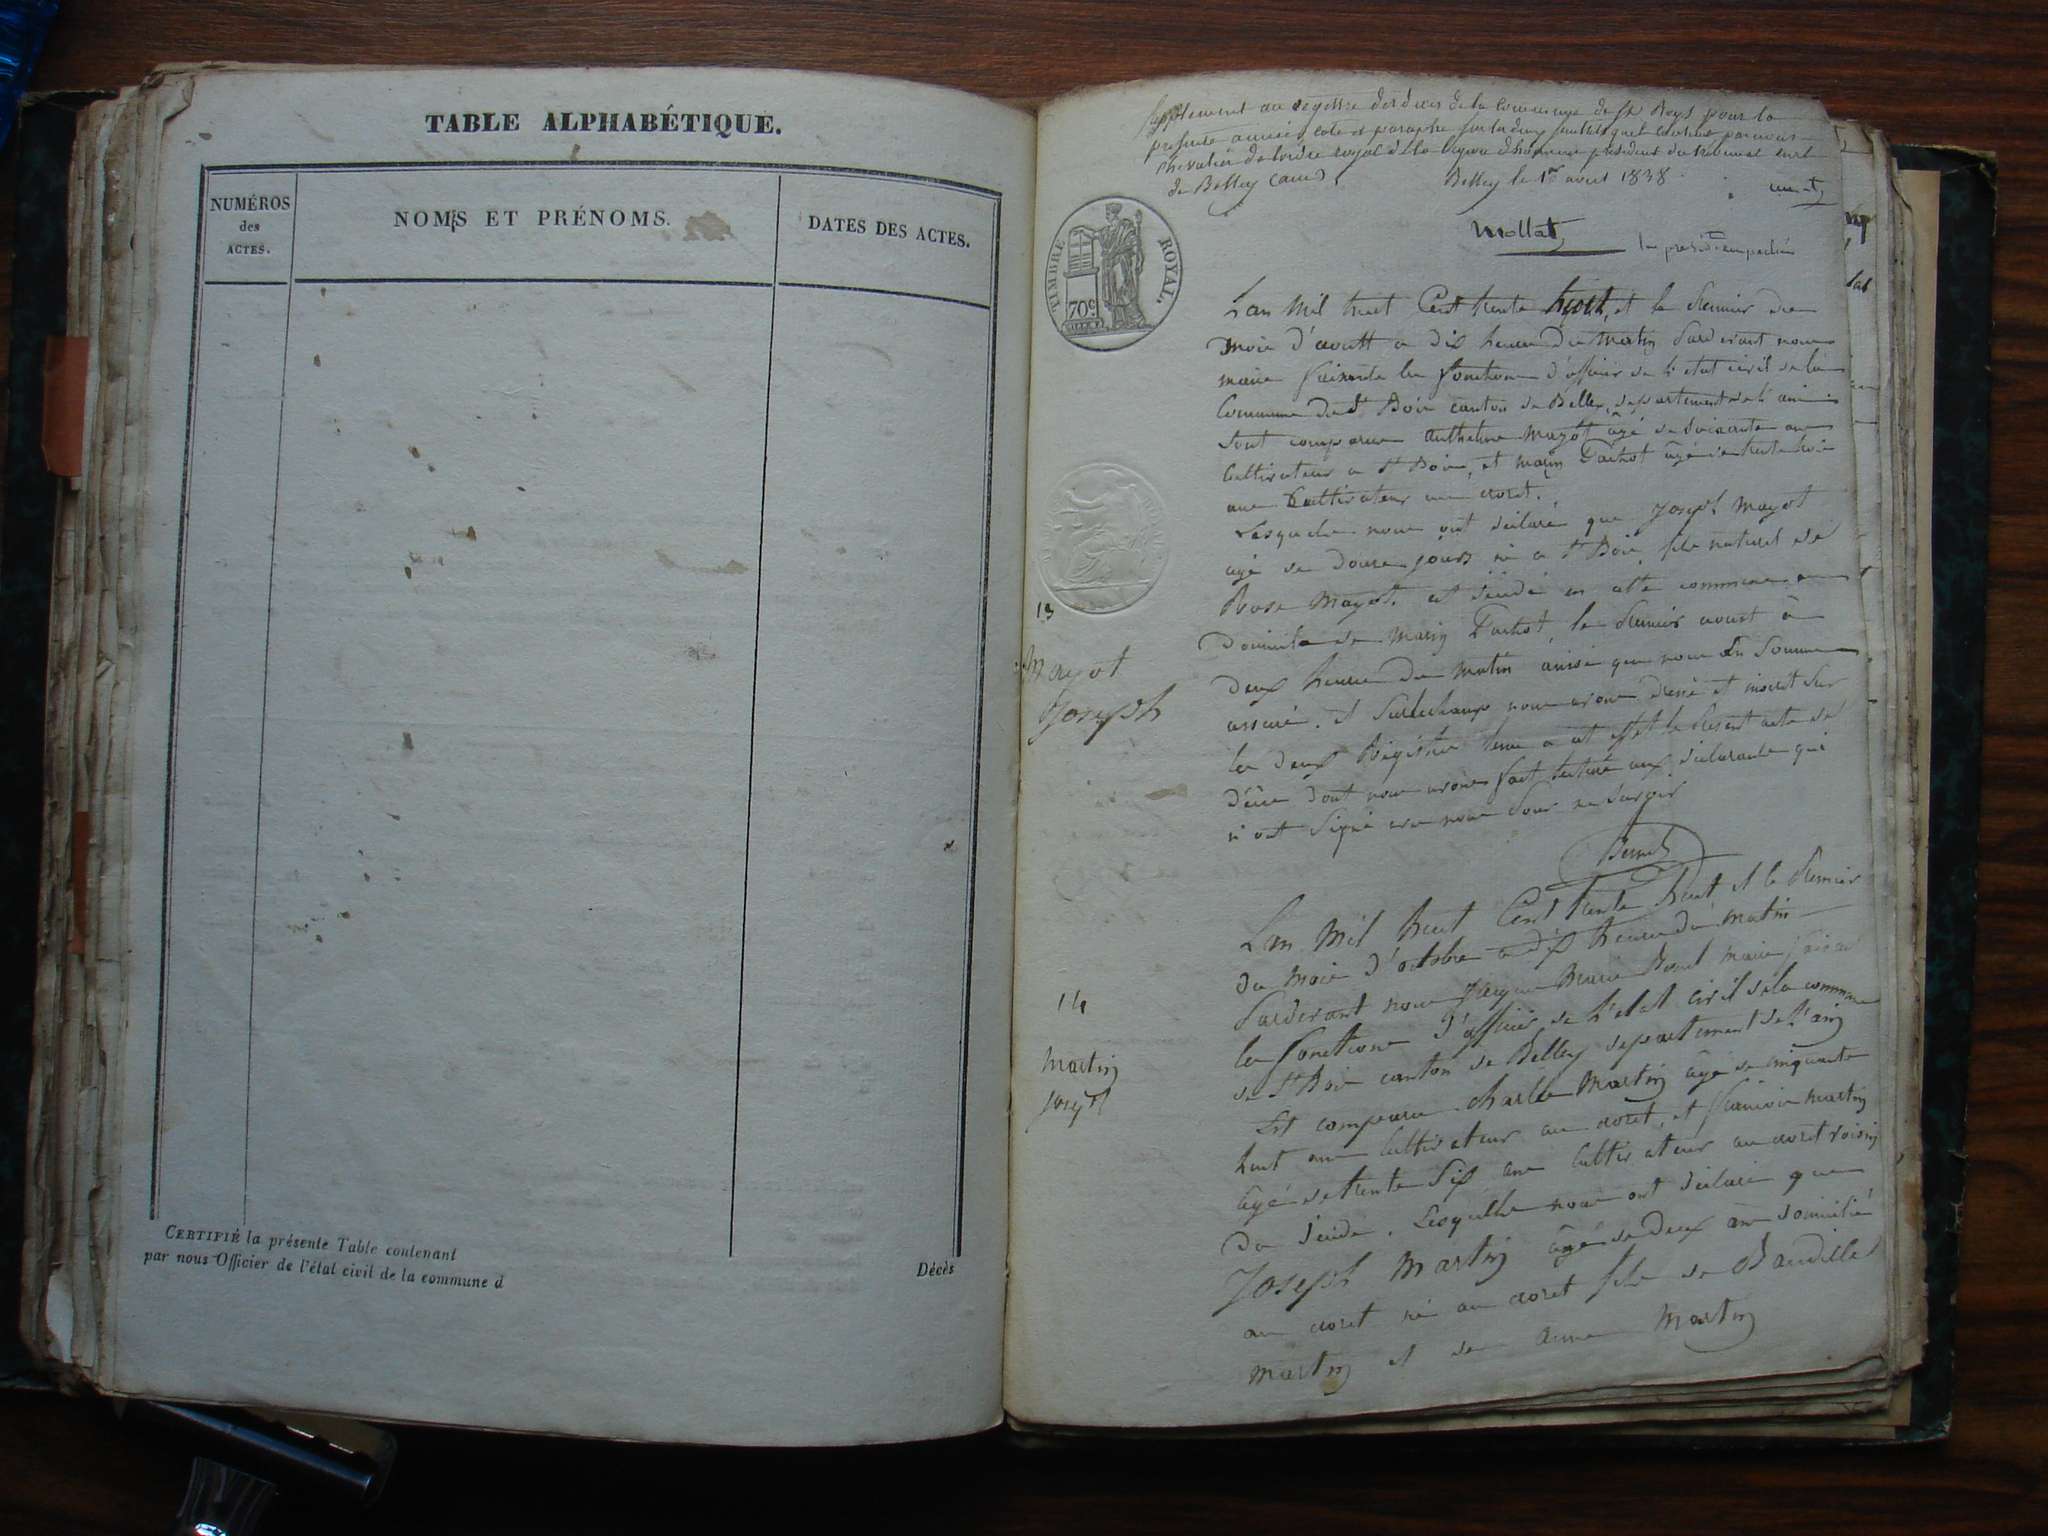 TABLE ALPHABÉTIQUE.
NUMÉROS
des
ACTES.
NOMS ET PRÉNOMS.
DATES DES ACTES.
CERTIFIÉ la présente Table contenant
par nous Officier de l'état civil de la commune d
Décès
Supplement au registre des deces de la commune de St Boys pour la
presente année, cote et paraphe
chevalier de l'ordre royal de la legion d'honneur president du tribunal civil
de Belley (ain). Belley le 1er aout 1838
Mollat
TIMBRE ROYAL.
70c
L'an mil huit Cent trente huit, et le premier de
mois d'aoutt a dix heure du matin Pardevant nous
maire faisante les fonctions d'officier de l'etat civil de la
Commune de St Bois canton de Belley, departement de l'ain
Sont comparus anthelme Mayot âgé de soixante ans
Cultivateur a St Bois, et marin Pachot âgé de trente trois
ans Cultivateur au coret.
Lesquels nous ont déclaré que Joseph Mayot
âgé de douze jours né a St Bois fils naturel de
Rose Mayot. est décédé en cette commune au
Domicile de Marin Pachot, le premier aoust à
deux heures du matin ainsi que nous en sommes
assuré. et surlechamp nous avons dressé et inscrit sur
les deux Régistres tenus a cet effet le present acte de
décès dont nous avons fait lecture aux déclarants qui
n'ont signé avec nous pour ne savoir
13
Mayot
Joseph
L'an Mil huit Cent trente huit et le premier
du mois d'octobre a dix heures du matin
Pardevant nous Jacque Marie Bonet maire faisant
les fonctions d'officier de l'etat civil de la commune
de St Bois canton de Belley departement de l'ain
Est comparu Charles Martin âgé de cinquante
huit ans Cultivateur au coret, et francois martin
âgé de trente six ans Cultivateur au coret voisin
du décédé. Lesquelles nous ont déclaré que
Joseph Martin âgé de deux ans domicilié
au coret né au coret fils de Baudille
Martin et de anne Martin
14
Martin
Joseph